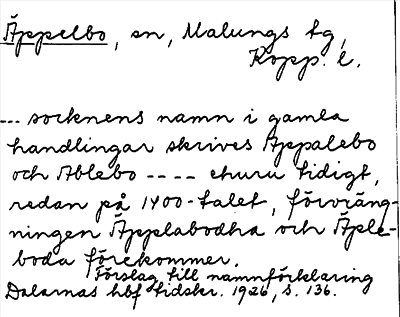 Äppelbo, sn, Malungs tg,
Kopp. l.
--- socknens namn i gamla
handlingar skrives Äppalebo
och Ablebo ---- churu tidigt,
redan på 1400-talet, förväng-
ningen Äpplabodha och Äple-
boda förekommer.
Förslag till namnförklaring
Dalarnas hbf tidskr. 1926, s. 136.